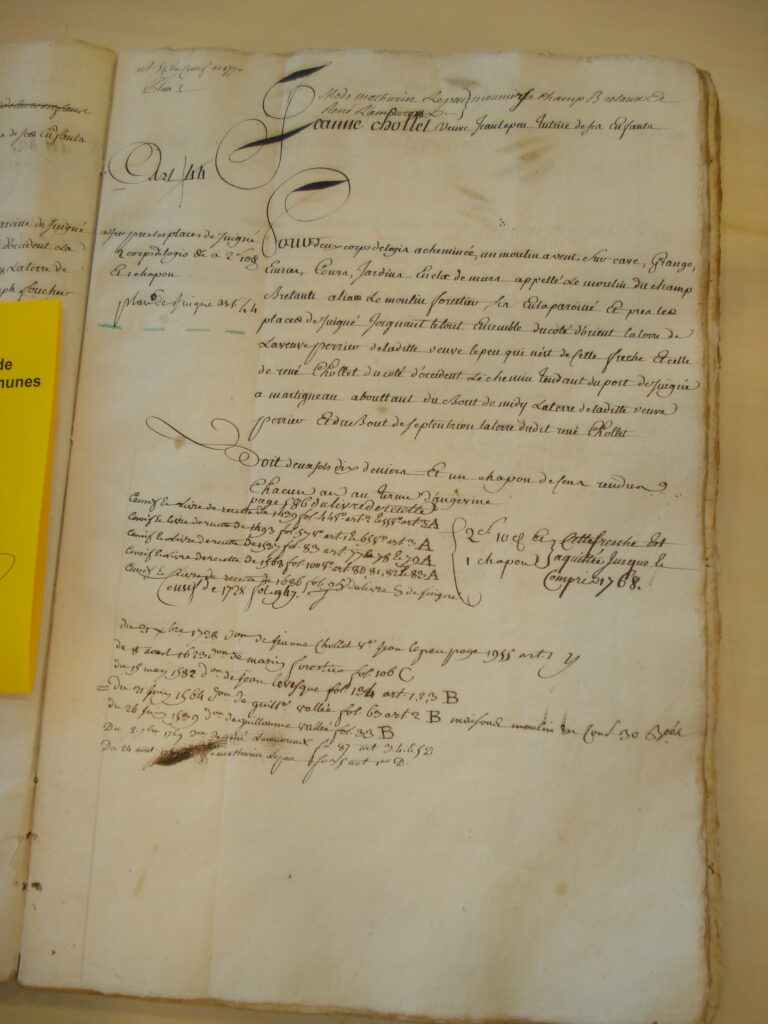 de scs Enfants
Juigné
d'occident La
La terre de
de
munes
art 52 du Censif de 1770
Modo mathurin Lepeu meunier de champ Bretaux Et
René
Jeanne Chollet veuve Jean lepeu tutrice de ses Enfants
Art 44
pres les places de Juigné
2 corps de logis &a 2s 10d
Et 1 chapon
plan de Juigné art 44
Pour deux corps de logis a cheminée, un moulin avent, sur cave, Grange,
Ecuries, Cours, Jardins Enclos de murs appellé Le moulin du champ
Bretault alias Le moulin forestier sis En la paroisse Et pres les
places de Juigné Joignant le tout Ensemble du coté d'orient la terre de
La veuve perrier de laditte veuve lepeu qui n'est de Cette freche Et celle
de rené Chollet du coté d'occident Le chemin tendant du port de Juigné
a martigneau abouttant du Bout de midy La terre de laditte veuve
perrier Et du Bout de septentrion la terre dudit rené Chollet
Doit deux sols dix deniers Et un chapon de Cens rendus
Chacun an au terme d'angevine
page 586 du livre de recette
Censif Le Livre de recette de 1439 fol. 445 art 2 le 555 art 3 A
Censif le livre de recette de 1493 fol. 575 art 1 le 655 art 3 A
Censif le Livre de recette de 1537 fol. 83 art 77 & 78 le 79 A
Censif le Livre de recette de 1563 fol. 100 art 80 81, 82 & 83 A
Censif Le Livre de recette de 1686 fol. 95 du livre de Juigné
Censif de 1728 fol. 947.
2s 10d Et
1 chapon
Cette fresche Est
aquittée Jusque le
Compris 1768.
du 21 xbre 1728 don de Jeanne Chollet ve Jean lepeu page 1955 art 1
de 8 aoust 1623 don de marin forestier fol. 106 C
du 15 may 1582 don de Jean levesque fol. 134 art 1, 2, 3 B
du 21 juin 1564 don de guille vallée fol. 63 art 2 B maisons moulin
du 26 juin 1539 don de guillaume vallée fol. 33 B
Du 2 7bre 1769 don de rené fo 87 art 3 4 & 5 D
Du 24 mathurin Lepeu art 1er D.